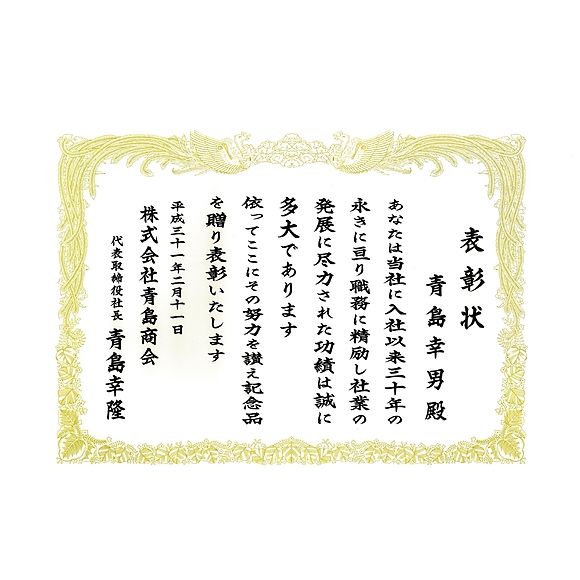 表彰状
青島幸男殿
あなたは当社に入社以来三十年の
永きに亘り職務に精励し社業の
発展に尽力された功績は誠に
多大であります
依ってここにその努力を讃え記念品
を贈り表彰いたします
平成三十一年二月十一日
株式会社青島商会
代表取締役社長 青島幸隆